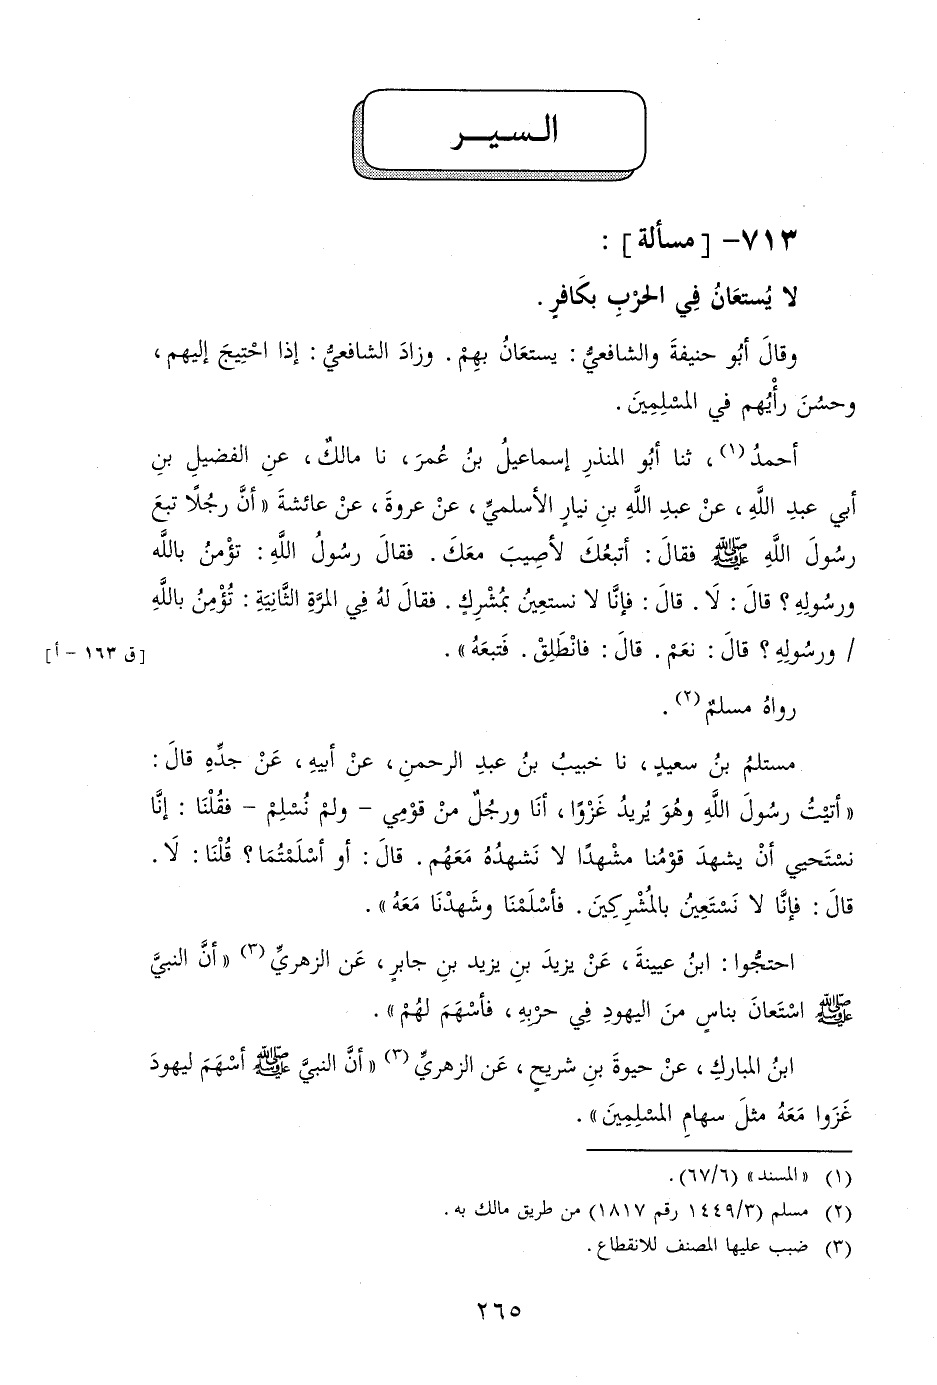 السير
٧١٣- [ مسألة ] :
لا يُستعَانُ فِي الحَرْبِ بكَافرٍ .
وقالَ أبُو حنيفةَ والشافعيُّ : يستعَانُ بهِمْ . وزادَ الشافعيُّ : إذا احْتِيجَ إليهم ،
وحسُنَ رأْيُهم في المسْلِمِينَ .
أحمدُ (١) ، ثنا أبُو المنذرِ إسماعيلُ بنُ عُمرَ ، نا مالكٌ ، عنِ الفضيلِ بنِ
أبي عبدِ اللَّهِ ، عنْ عبدِ اللَّهِ بنِ نيارٍ الأسلميِّ ، عنْ عروةَ ، عنْ عائشةَ « أنَّ رجُلًا تبعَ
رسُولَ اللَّهِ ﷺ فقالَ : أتبعُكَ لأصِيبَ معَكَ . فقالَ رسُولُ اللَّهِ : تؤْمنُ باللَّه
ورسُولِهِ ؟ قالَ : لَا . قالَ : فإنَّا لا نستعِينُ بمُشْركٍ . فقالَ لهُ فِي المرَّةِ الثَّانِيَةِ : تُؤْمِنُ باللَّهِ
/ ورسُولِهِ ؟ قالَ : نعَمْ . قالَ : فانْطَلِقْ . فَتبعَهُ » .
[ق ١٦٣ - أ]
رواهُ مسلمٌ (٢) .
مستلمُ بنُ سعيدٍ ، نا خبيبُ بنُ عبدِ الرحمنِ ، عنْ أبيهِ ، عَنْ جدِّهِ قالَ :
« أتيْتُ رسُولَ اللَّهِ وهُوَ يُريدُ غَزْوًا ، أنَا ورجُلٌ منْ قوْمِي - ولمْ نُسْلِمْ - فقُلْنَا : إنَّا
نسْتَحيي أنْ يشهدَ قوْمُنا مشْهدًا لا نَشهدُهُ مَعَهُم . قالَ : أو أسْلَمْتُمَا ؟ قُلْنَا : لَا .
قالَ : فإنَّا لا نَسْتَعِينُ بالمُشْرِكِينَ . فأسْلَمْنَا وشَهدْنَا مَعَهُ » .
احتجُّوا : ابنُ عيينةَ ، عَنْ يزيدَ بنِ يزيد بنِ جابرٍ ، عَن الزهريِّ (٣) « أنَّ النبيَّ
ﷺ اسْتَعانَ بناسٍ منَ اليهودِ فِي حرْبِهِ ، فأسْهَمَ لهُمْ » .
ابنُ المباركِ ، عنْ حيوةَ بنِ شريحٍ ، عَن الزهريِّ (٣) « أنَّ النبيَّ ﷺ أسْهَمَ ليهودَ
غَزَوا مَعَهُ مثلَ سهامِ المسْلِمِينَ » .
(١) «المسند» (٦/ ٦٧) .
(٢) مسلم (٣/ ١٤٤٩ رقم ١٨١٧) من طريق مالك به .
(٣) ضبب عليها المصنف للانقطاع .
٢٦٥